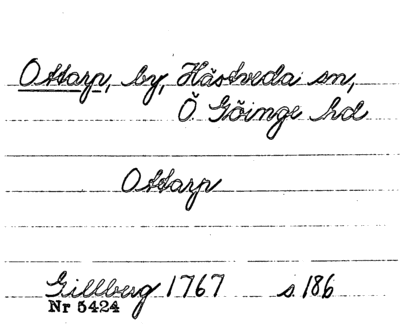 Ottarp, by, Hästveda sn,
Ö Göinge hd
Ottarp
Gillberg 1767 s 186
Nr 5424